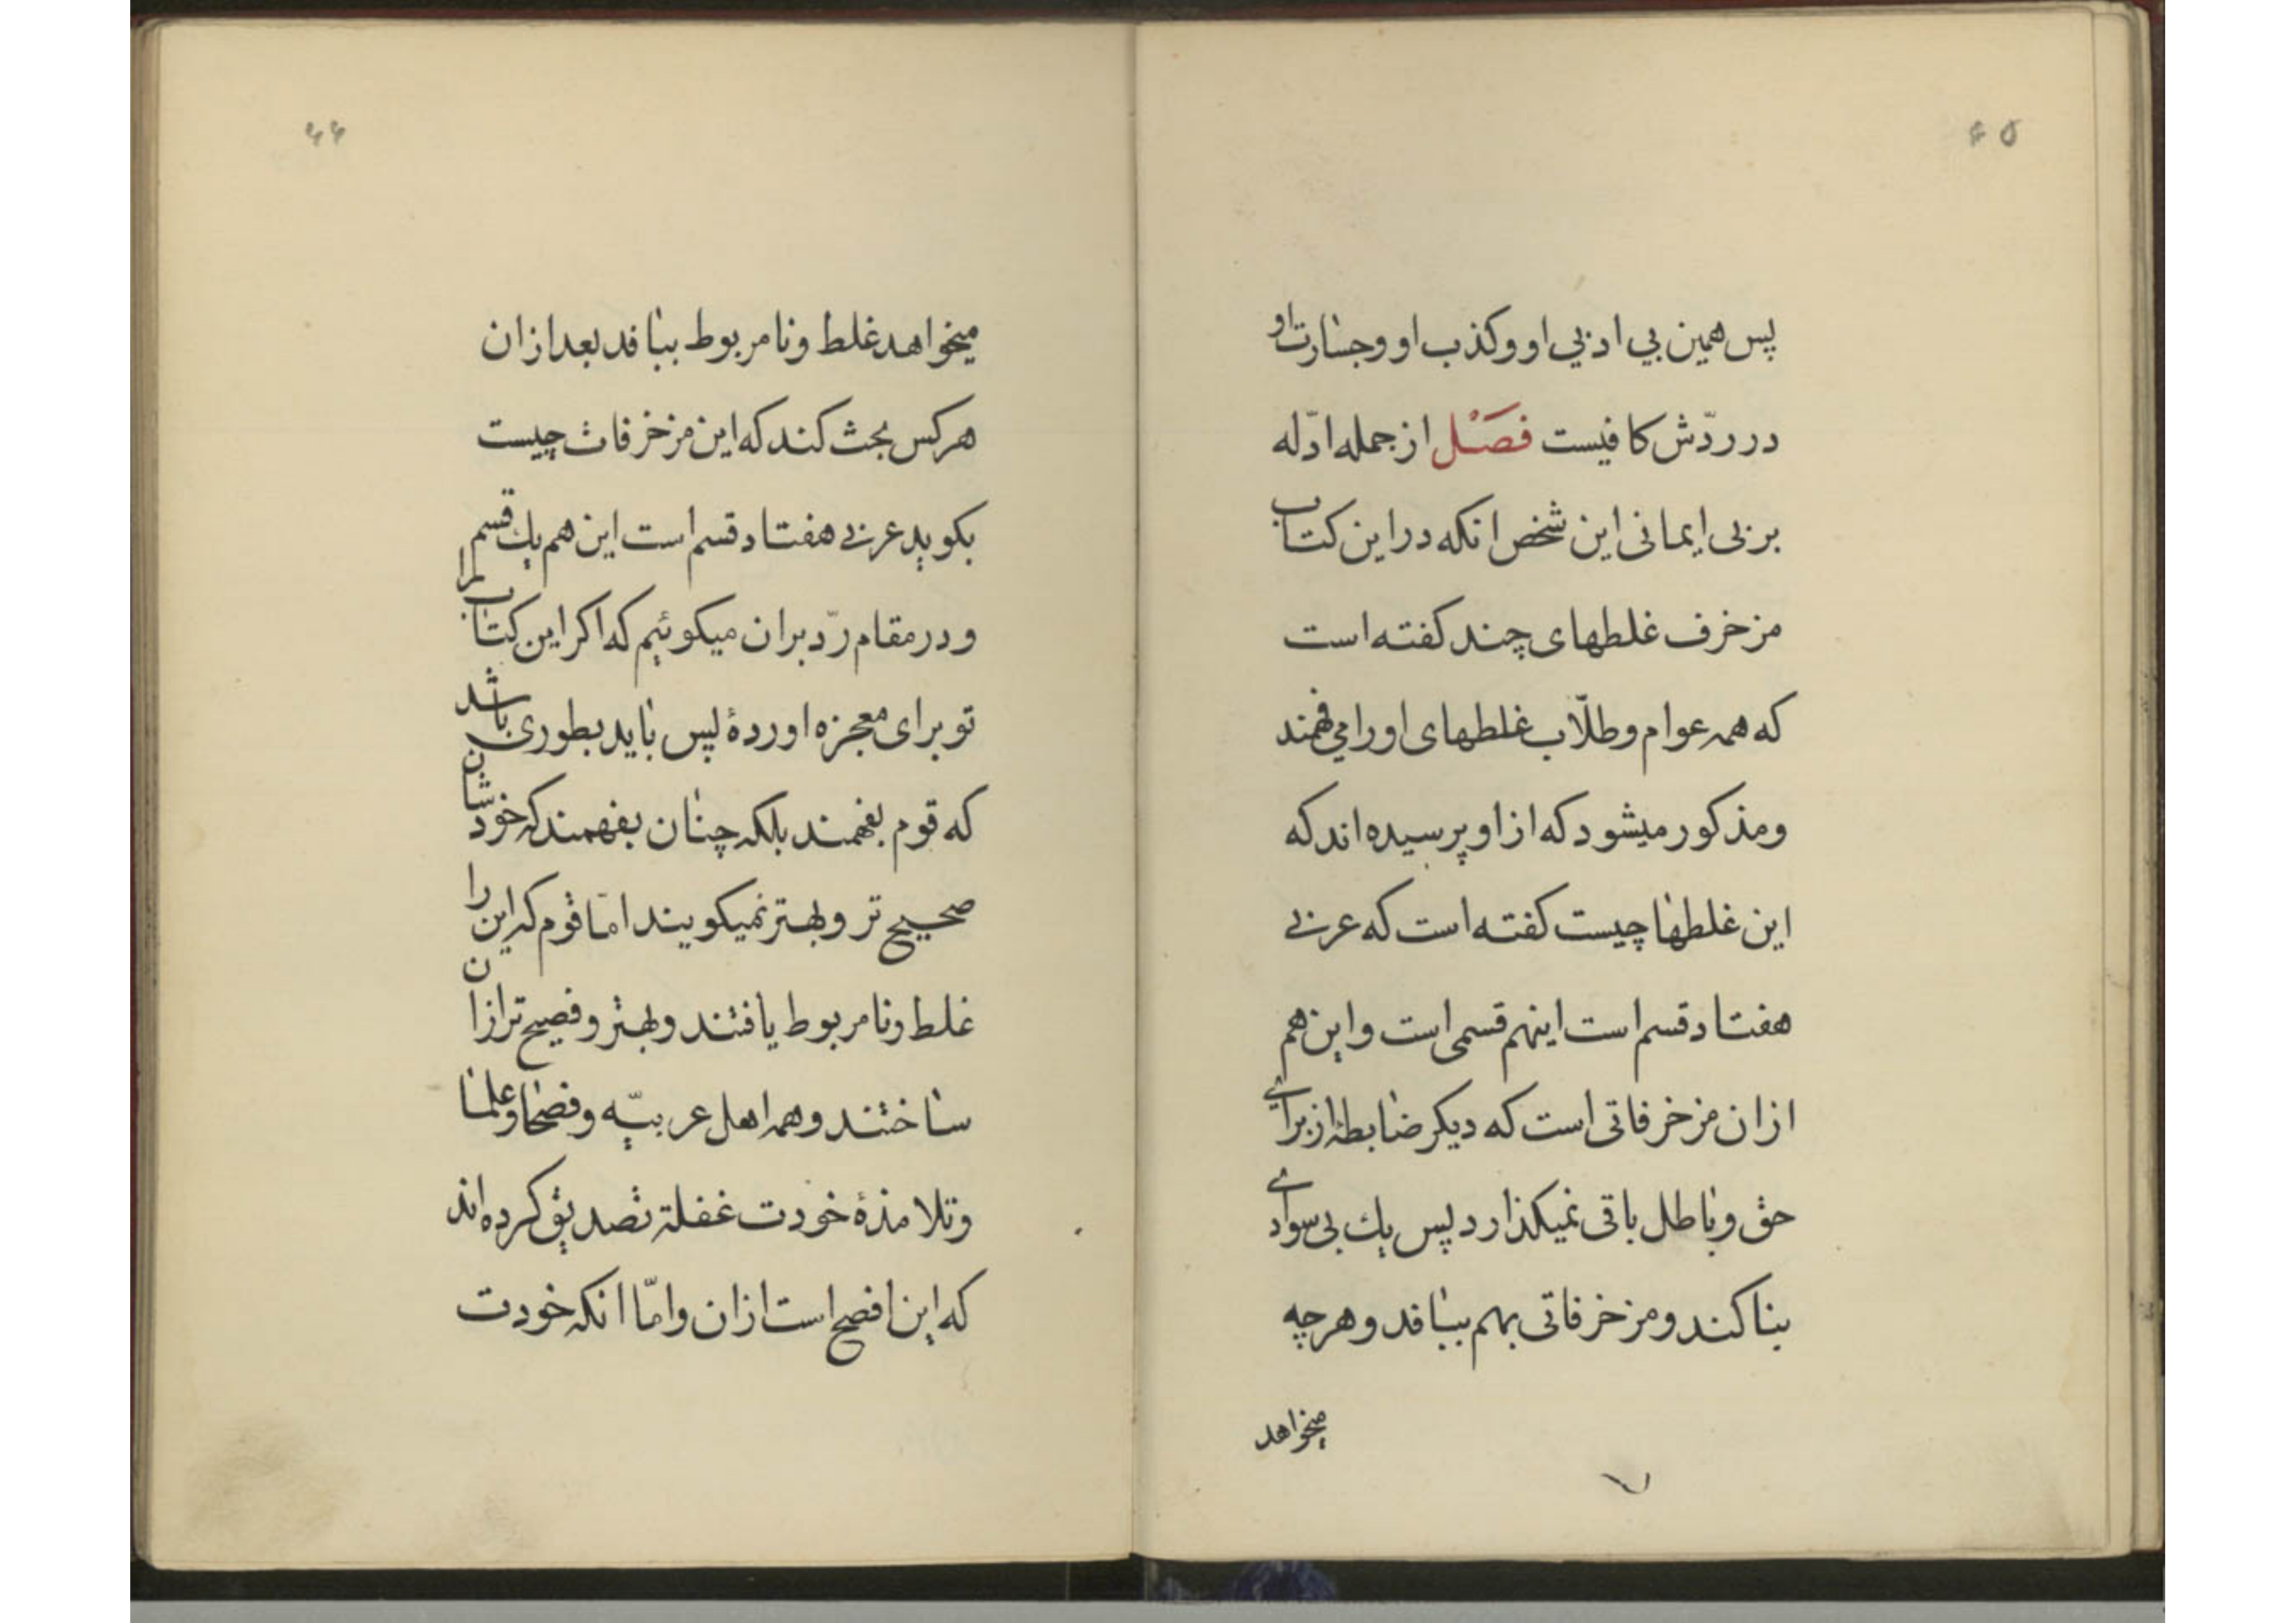 ۴۵
پس همین بی ادبی او و کذب او و جسارت او
در ردّش کافیست فَصَْل از جمله ادّله
بر بی ایمانی این شخص انکه در این کتاب
مزخرف غلطهای چند کفته است
که همه عوام و طلّاب غلطهای او را می فهمند
و مذکور میشود که از او پرسیده اند که
این غلطها چیست کفته است که عربی
هفتاد قسم است اینهم قسمی است و این هم
از ان مزخرفاتی است که دیکر ضابطهٔ از برای
حق و باطل باقی نمیکذارد پس یك بی سوادی
بنا کند و مزخرفاتی بهم ببافد و هر چه
میخواهد
۴۶
میخواهد غلط و نامربوط ببافد بعد از ان
هر کس بحث کند که این مزخرفات چیست
بکوید عربی هفتاد قسم است این هم یك قسم
و در مقام ردّ بر ان میکوئیم که اکر این کتاب را
تو برای معجزه اوردهٔ پس باید بطوری باشد
که قوم بفهمند بلکه چنان بفهمند که خودشان
صحیح تر و بهتر نمیکویند امّا قوم که این را
غلط و نامربوط یافتند و بهتر و فصیح تر از ان
ساختند و همه اهل عربیّه و فصحا و علما
و تلامذهٔ خودت غفلة تصدیق کرده اند
که این افصح است از ان و امّا انکه خودت